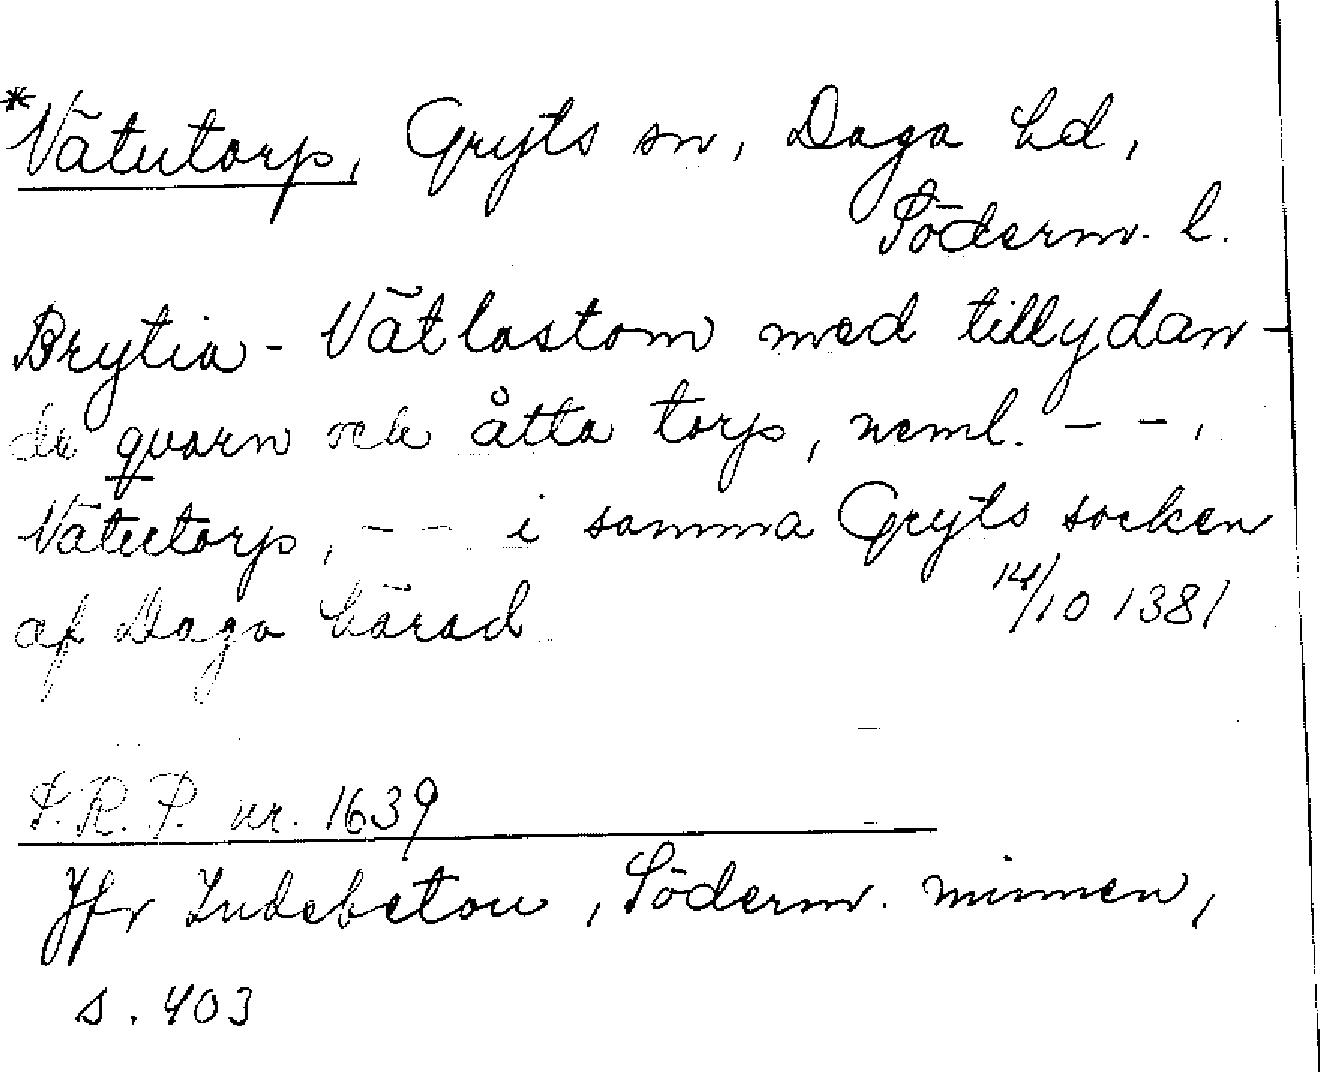 *Vätutorp, Gryts sn, Daga hd,
Söderm. l.
Brytia - Vätlostom med tillydan-
de qvarn och åtta torp, neml. - - ,
Vätutorp, - - i samma Gryts socken
af Daga härad 14/10 1381
S.R.P. nr. 1639
Jfr Indebetou, Söderm. minnen,
s. 403